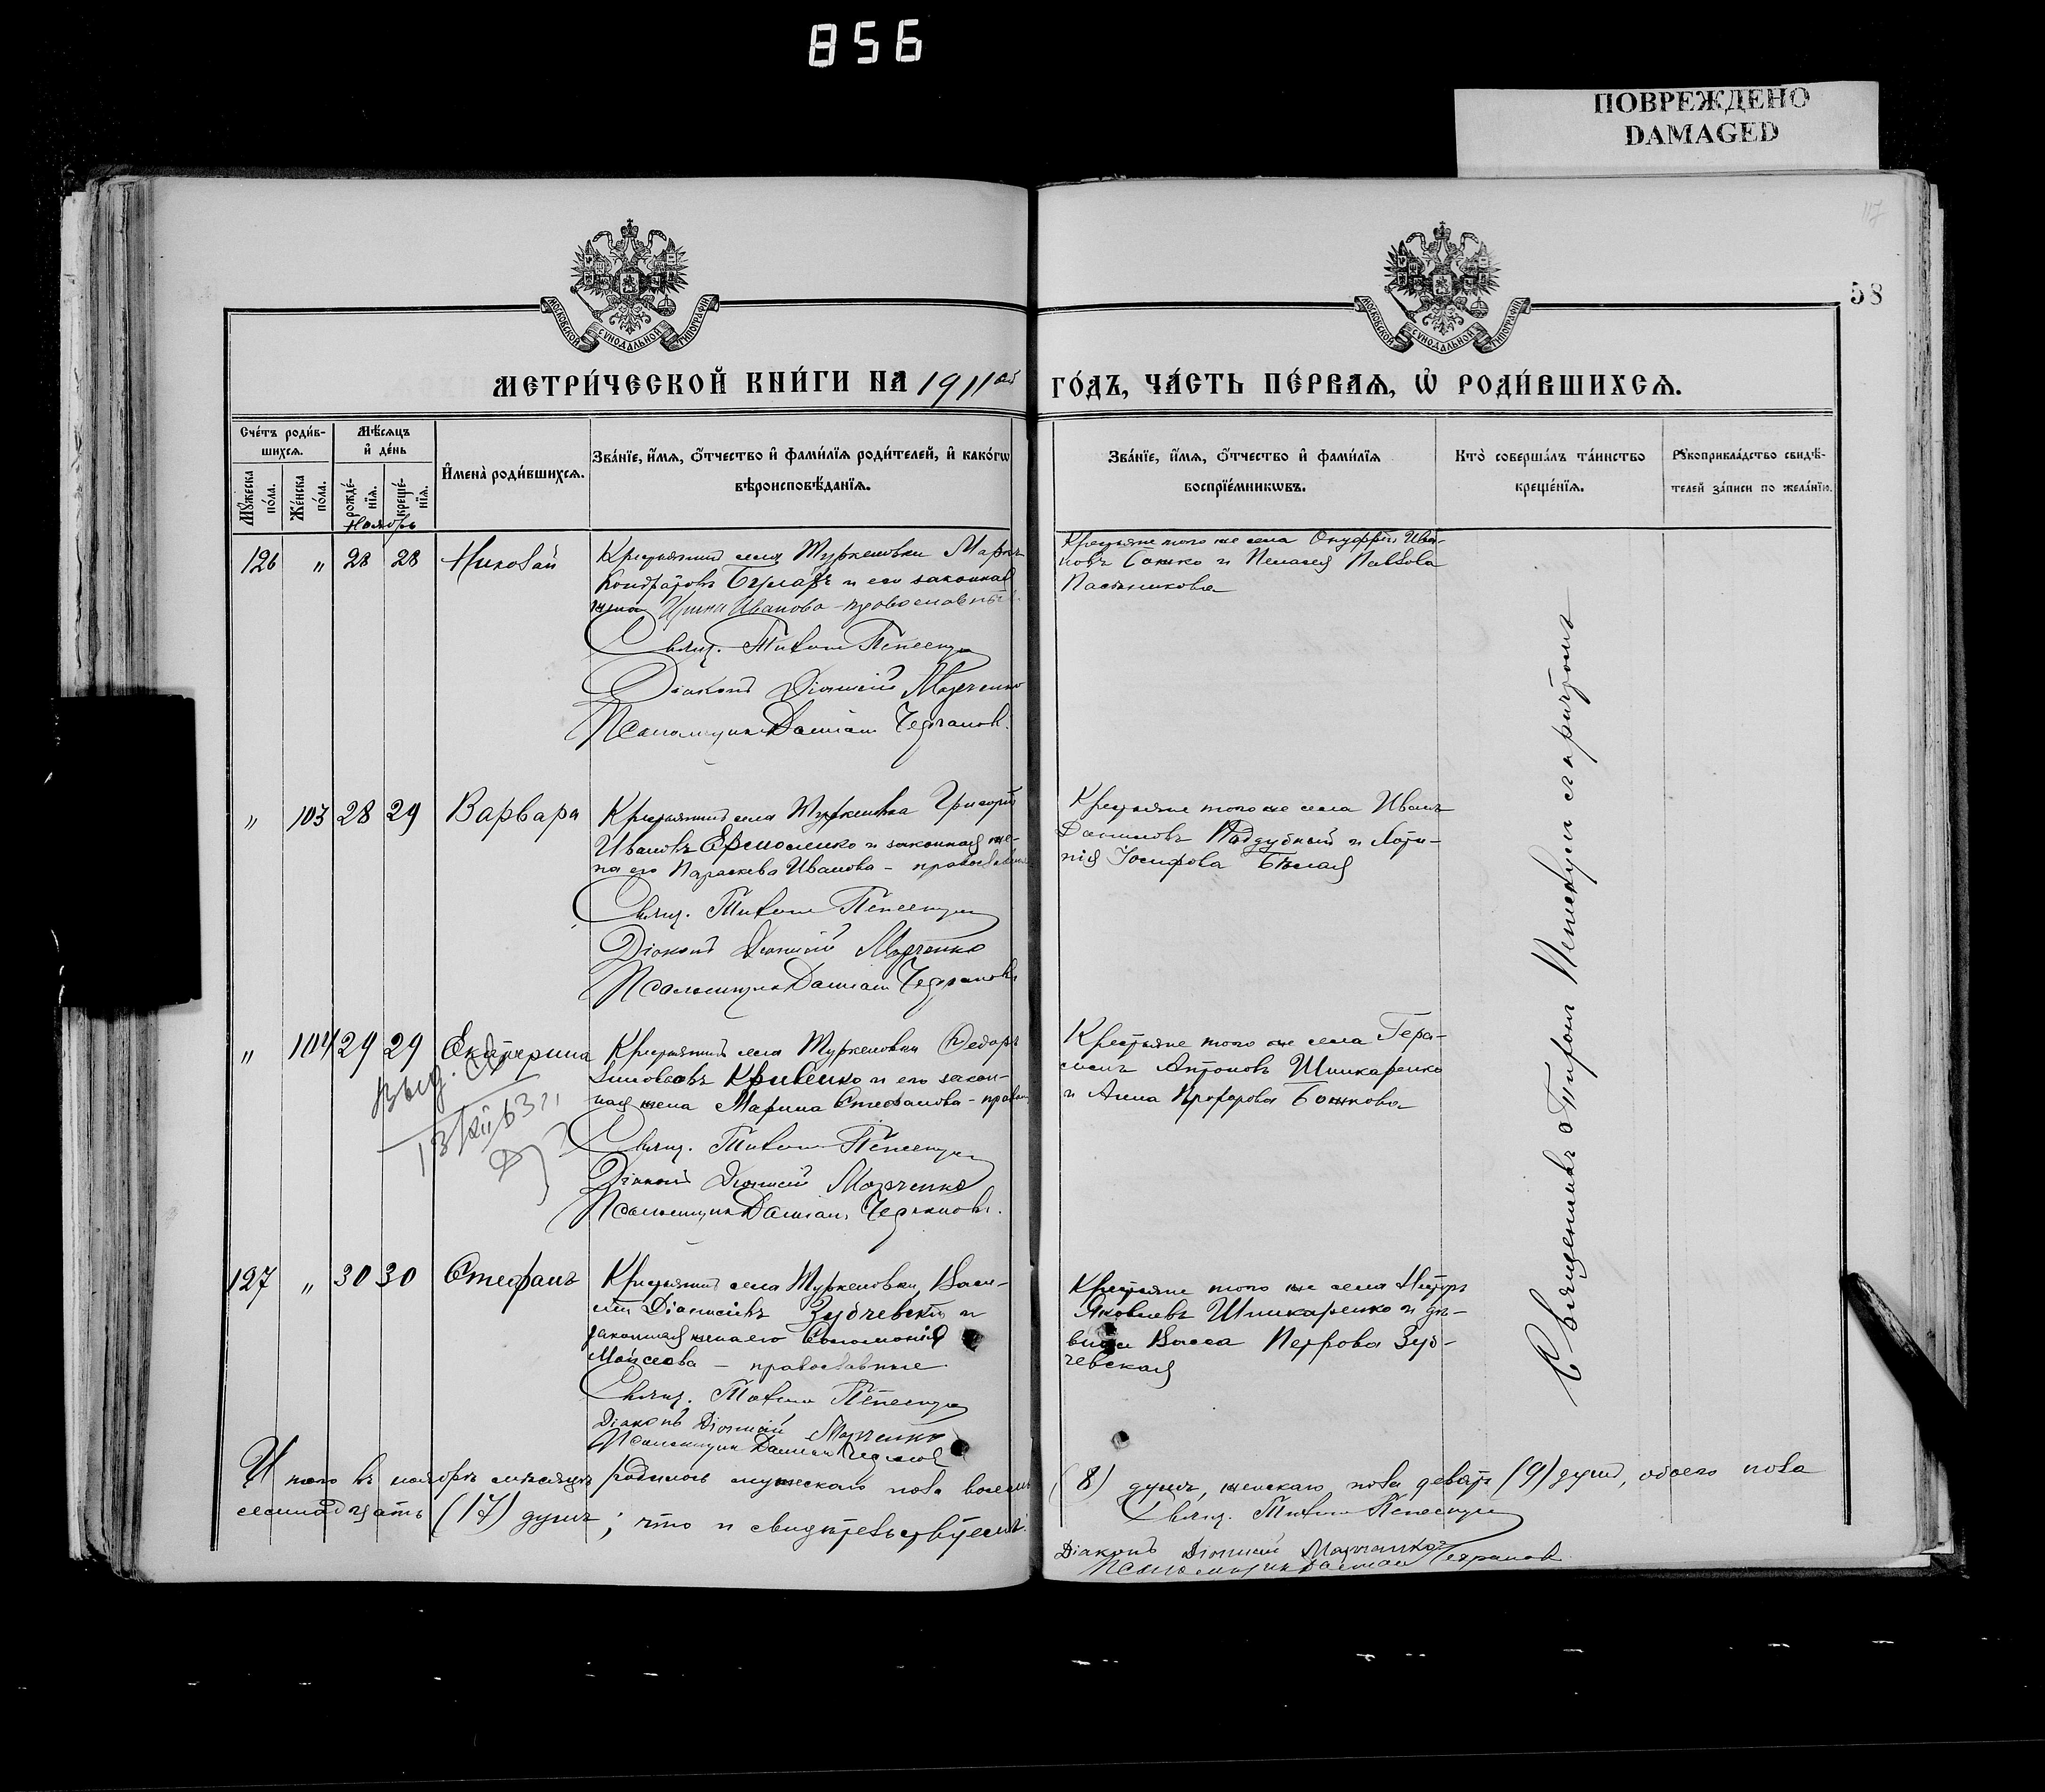 856
ПОВРЕЖДЕНО
DAMAGED
117
58
МОСКОВСКОЙ СѴНОДАЛЬНОЙ ТИПОГРАФІИ
МОСКОВСКОЙ СѴНОДАЛЬНОЙ ТИПОГРАФІИ
МЕТРИ́ЧЕСКОЙ КНИ́ГИ НА 1911ый ГО́ДЪ, ЧА́СТЬ ПЕ́РВАѦ, Ѽ РОДИ́ВШИХСѦ.
Сче́тъ роди́в-
шихсѧ.
Мꙋжеска по́ла.
Же́нска по́ла.
Мѣ́сѧцъ
и҆ де́нь
рожде́-
нїѧ.
креще́-
нїѧ.
И҆мена̀ роди́вшихсѧ.
Зва́нїе, и҆́мѧ, ѻ҆́тчество и҆ фами́лїѧ роди́телей, и҆ како́гѡ
вѣроисповѣ́данїѧ.
Зва́нїе, и҆́мѧ, ѻ҆́тчество и҆ фами́лїѧ
воспрїе́мникѡвъ.
Кто̀ соверша́лъ та́инство
креще́нїѧ.
Рꙋкоприкла́дство свидѣ́-
телей за́писи по жела́нїю.
Ноябрь
126 „ 28 28 Николай
Крестьянинъ села Туркеновки Маркъ
Кондратовъ и его законная
жена Ирина Иванова - православные.
Свящ. Тихон
Діаконъ Діонисій Марченко
Псаломщикъ Даміан
Крестьяне того же села Онуфрій Ива-
новъ Божко и Пелагея Павлова
Пасѣчникова
„ 103 28 29 Варвара
Крестьянинъ села Туркеновка Григорій
Ивановъ Ермоленко и законная же-
на его Параскева Иванова - православные
Свящ. Тихон
Діаконъ Діонисій Марченко
Псаломщикъ Даміан
Крестьяне того же села Иванъ
Даниловъ Поддубный и
Іосифова Бѣлая
„ 104 29 29 Екатерина
Выд.
Крестьянинъ села Туркеновки Ѳедоръ
Кривенко и его закон-
ная жена Марина Стефанова - правосл.
Свящ. Тихон
Діаконъ Діонисій Марченко
Псаломщикъ Даміан
Крестьяне того же села Гера-
симъ Антоновъ Шинкаренко
и Анна Прохорова Божкова
127 „ 30 30 Стефанъ
Крестьянинъ села Туркеновки Васи-
лій Діонисіевъ Зубчевскій и
законная жена его Соломонія
Мойсеева - православные.
Свящ. Тихон
Діаконъ Діонисій Марченко
Псаломщикъ Даміан
Крестьяне того же села Несторъ
Яковлевъ Шинкаренко и дѣ-
вица Васса Петрова Зуб-
чевская
Священникъ Тихон
Итого въ ноябрѣ мѣсяцѣ родилось мужескаго пола восемь (8) душъ, женскаго пола девять (9) душъ, обоего пола
семнадцать (17) душъ; что и свидѣтельствуемъ.
Свящ. Тихон
Діаконъ Діонисій Марченко
Псаломщикъ Даміан